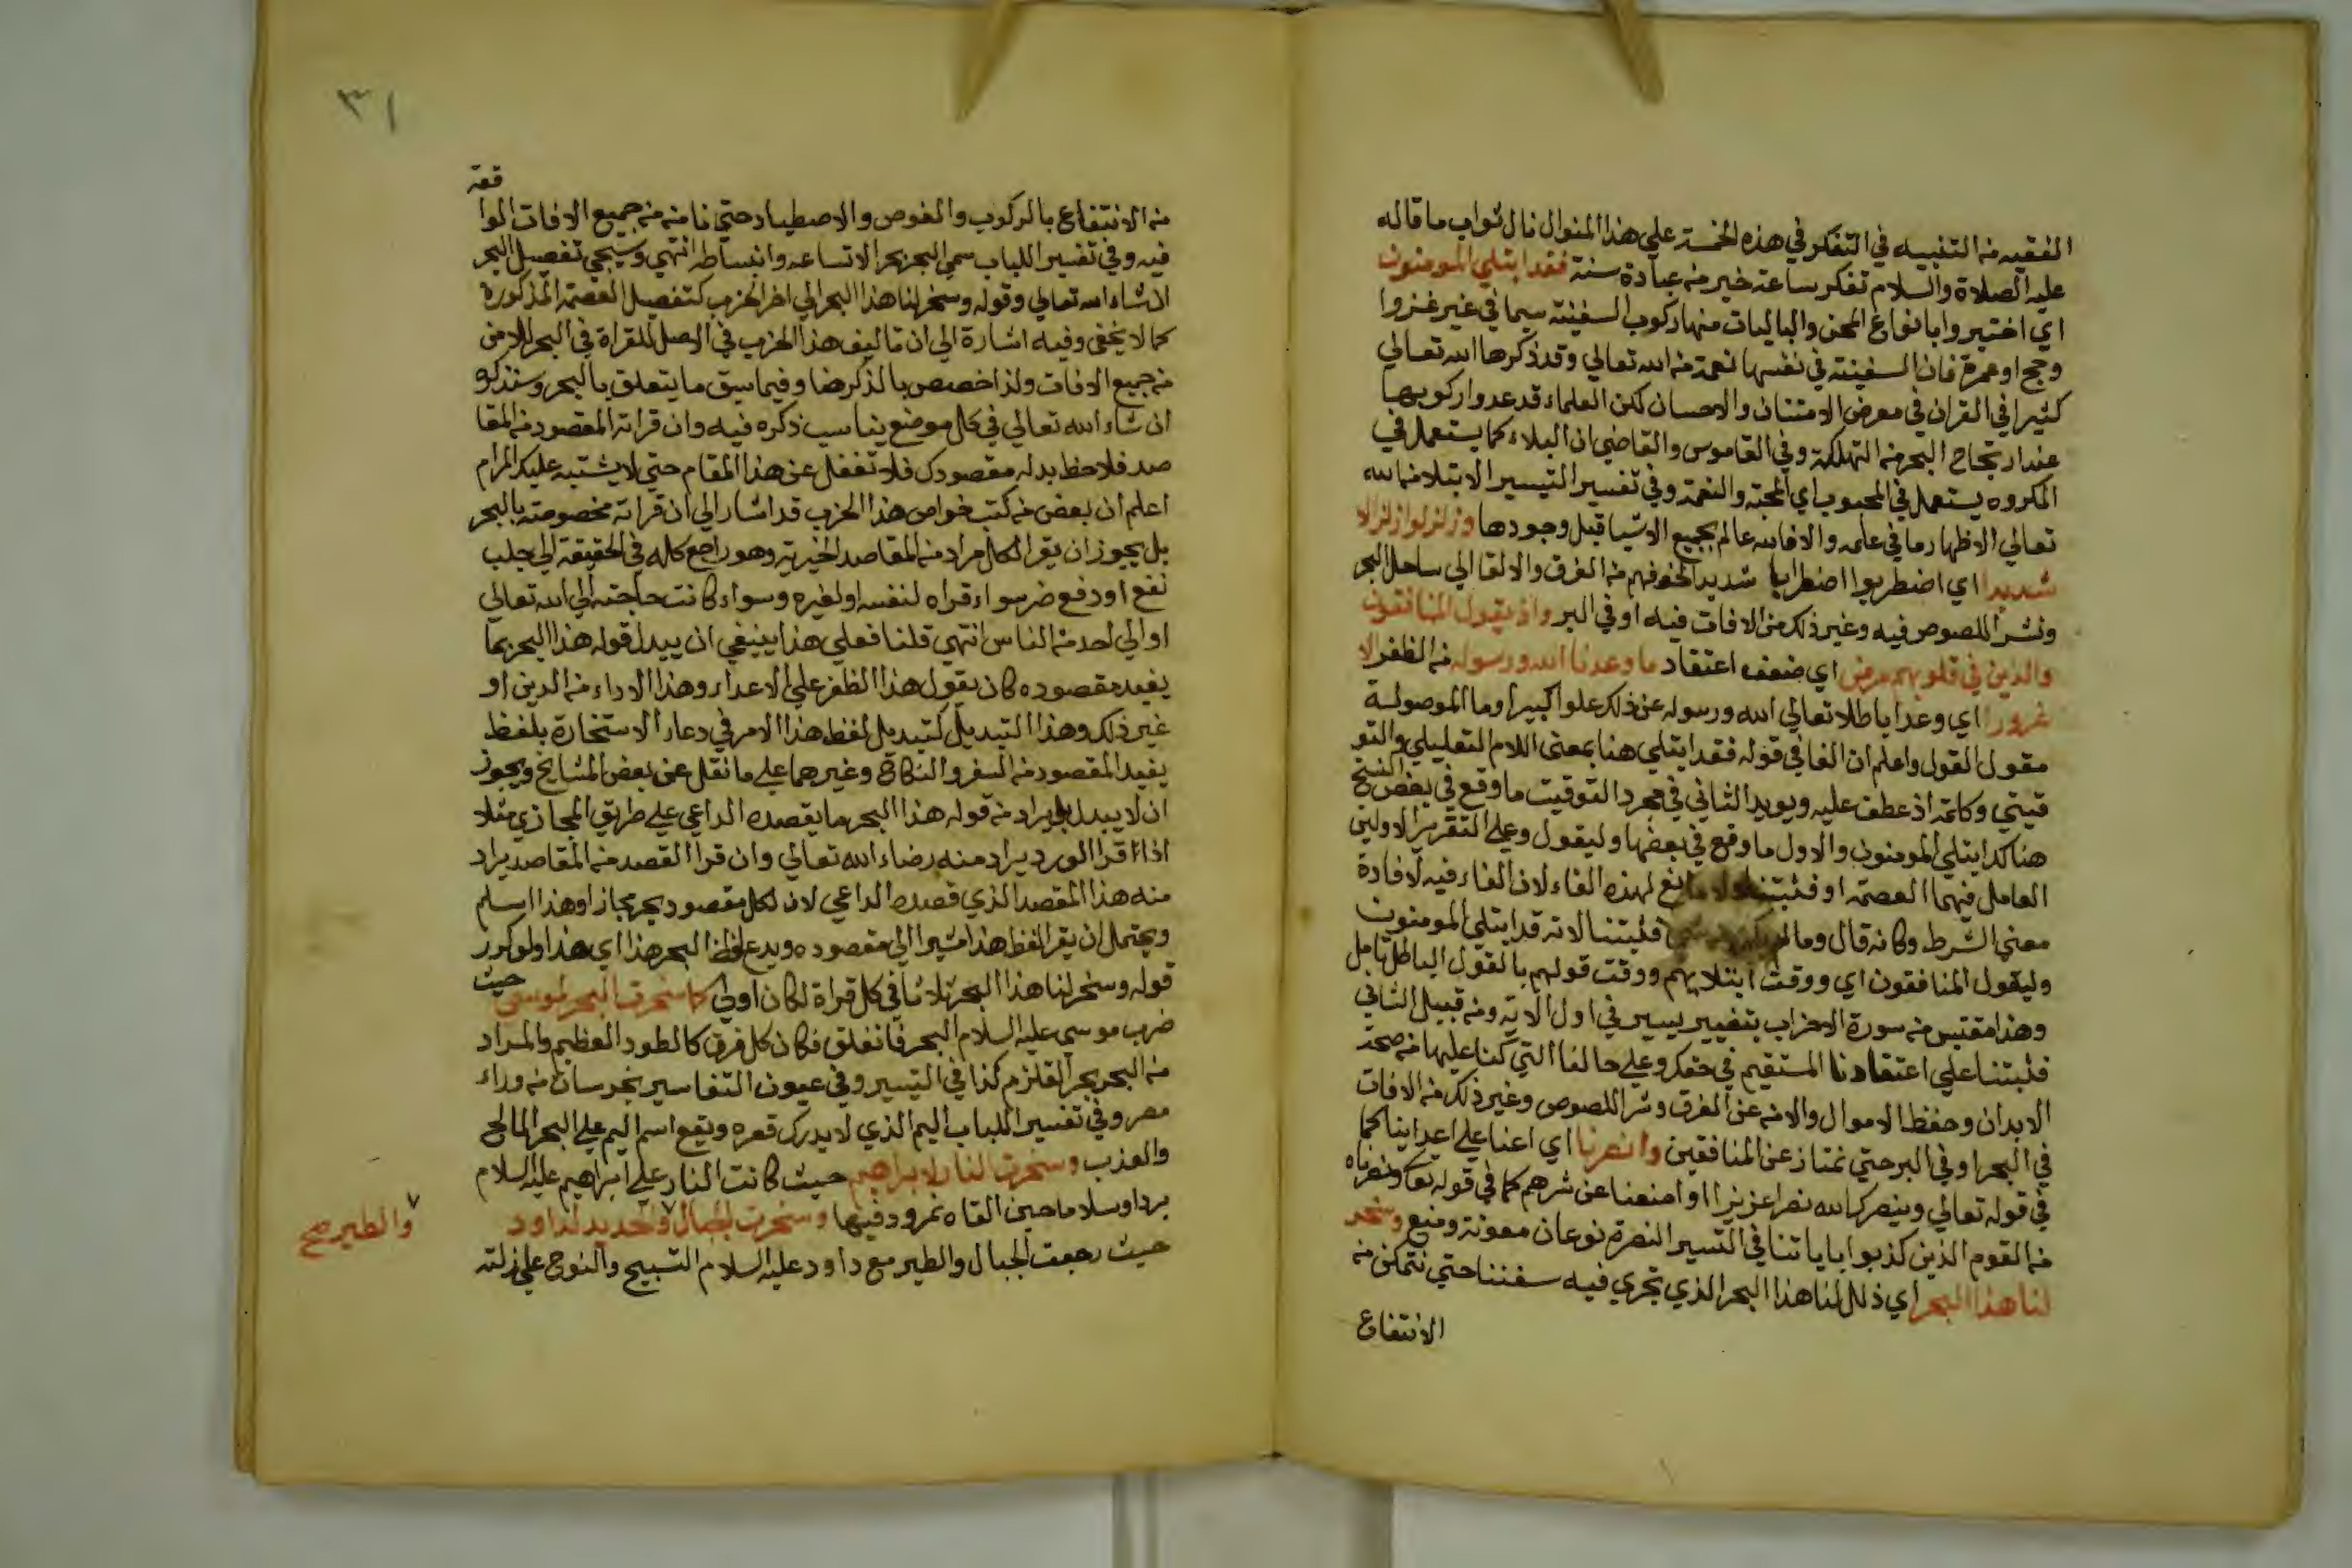 الفقيه من التنبيه في التفكر في هذه الخمسة علي هذا المنوال نال ثواب ما قاله
عليه الصلاة والسلام تفكر ساعة خير من عبادة سنة فقد ابتلي المومنون
اي اختبروا بانواع المحن والباليات منها ركوب السفينة سيما في غير غزوا
وحج او عمرة فان السفينة في نفسها نعمة من الله تعالي وقد ذكرها الله تعالي
كثيرا في القران في معرض الامتنان والاحسان لكن العلماء قد عدوا ركوبها
عند ارتجاج البحر من التهلكة وفي القاموس والقاضي ان البلاء كما يستعمل في
المكروه يستعمل في المحبوب اي المحبة والنعمة وفي تفسير التيسير الابتلا من الله
تعالي الاظهار ما في علمه والا فالله عالم بجميع الاشيا قبل وجودها وزلزلوا زلزالا
شديدا اي اضطربوا اضطرابا شديدا لخوفهم من الغرق والالقا الي ساحل البحر
وشر اللصوص فيه وغير ذلك من الافات فيه او في البر واذ يقول المنافقون
والذين في قلوبهم مرض اي ضعف اعتقاد ما وعدنا الله ورسوله من الظفر الا
غرورا اي وعدا باطلا تعالي الله ورسوله عن ذلك علوا كبيرا وما الموصولة
مقول القول واعلم ان الفا في قوله فقد ابتلي هنا بمعني اللام التعليلي والتو
قيتي وكلمة اذ عطف عليه ويويد الثاني في مجرد التوقيت ما وقع في بعض النسخ
هناك ابتلي المومنون والاول ما وقع في بعضها وليقول وعلي التقرير الاولين
العامل فيهما العصمة او فثبتنا ولا مانع لهذه الفاء لان الفاء فيه لافادة
معني الشرط وكانه قال وما لم يكن من شي فثبتنا لانه قد ابتلي المومنون
وليقول المنافقون اي ووقت ابتلايهم ووقت قولهم بالقول الباطل تامل
وهذا مقتبس من سورة الاحزاب بتغيير يسير في اول الاية ومن قبيل الثاني
فثبتنا علي اعتقادنا المستقيم في حقك وعلي حالنا التي كنا عليها من صحة
الابدان وحفظ الاموال والامن عن الغرق وشر اللصوص وغير ذلك من الافات
في البحر او في البر حتي نمتاز عن المنافقين وانصرنا اي اعنا علي اعداينا كما
في قوله تعالي وينصرك الله نصرا عزيزا او امنعنا عن شرهم كما في قوله تعا ونصرناه
من القوم الذين كذبوا باياتنا في التسير النصرة نوعان معونة ومنع وسخر
لنا هذا البحر اي ذلل لنا هذا البحر الذي تجري فيه سفننا حتي نتمكن من
الانتفاع
٣١
قعة
من الانتفاع بالركوب والغوص والاصطياد حتي نامن من جميع الافات الوا
فيه وفي تفسير اللباب سمي البحر بحرا لاتساعه وانبساطه انتهي وسيجي تفصيل البحر
انشاء الله تعالي وقوله وسخر لنا هذا البحر الي اخر الحزب كتفصيل العصمة المذكورة
كما لا يخفي وفيه اشارة الي ان تاليف هذا الحزب في الاصل للقراة في البحر للامن
من جميع الافات ولذا خصص بالذكر هنا وفيما سبق ما يتعلق بالبحر وسنذكر
ان شاء الله تعالي في كل موضع يناسب ذكره فيه وان قراته المقصود من المقا
صد فلاحظ بدله مقصودك فلا تغفل عن هذا المقام حتي لا يشتبه عليك المرام
اعلم ان بعض من كتب خواص هذا الحزب قد اشار الي ان قراته مخصوصة بالبحر
بل يجوز ان يقرا لكل مراد من المقاصد الخيرية وهو راجع كله في الحقيقة الي جلب
نفع او دفع ضر سواء قراه لنفسه او لغيره وسواء كانت حاجته الي الله تعالي
او الي احد من الناس انتهي قلنا فعلي هذا ينبغي ان يبدل قوله هذا البحر بما
يفيد مقصوده كان يقول هذا الظفر علي الاعداء وهذا الاداء من الدين او
غير ذلك وهذا التبديل كتبديل لفظ هذا الامر في دعاء الاستخارة بلفظ
يفيد المقصود من السفر والنكاح وغيرهما علي ما نقل عن بعض المشايخ ويجوز
ان لا يبدل بل يراد من قوله هذا البحر ما يقصده الداعي علي طريق المجازي مثلا
اذا قرا الورد يراد منه رضاء الله تعالي وان قرا القصد من المقاصد يراد
منه هذا المقصد الذي قصده الداعي لان لكل مقصود بحر مجازا وهذا اسلم
ويحتمل ان يقرا لفظ هذا مشيرا الي مقصوده ويدع لفظ البحر هذا اي هذا ولو كرر
قوله وسخر لنا هذا البحر ثلاثا في كل قراة لكان اولي كما سخرت البحر لموسي حيث
ضرب موسي عليه السلام البحر فانفلق فكان كل فرق كالطود العظيم والمراد
من البحر بحر القلزم كذا في التيسير وفي عيون التفاسير بحر ساف من وراء
مصر وفي تفسير اللباب اليم الذي لا يدرك قعره ويقع اسم اليم علي البحر المالح
والعذب وسخرت النار لابراهيم حيث كانت النار علي ابراهيم عليه السلام
بردا وسلاما حين القاه نمرود فيها وسخرت الجبال والحديد لداود
والطير صح
حيث رجعت الجبال والطير مع داود عليه السلام التسبيح والنوح علي زلته